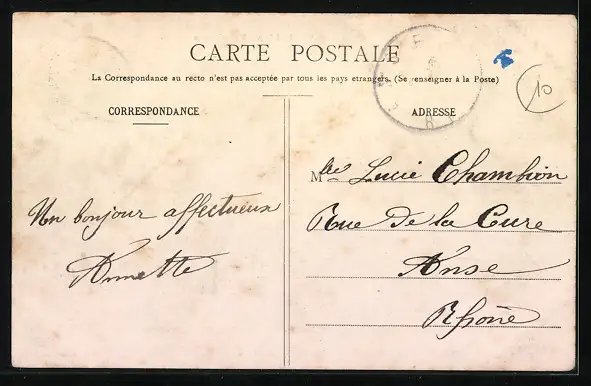 CARTE POSTALE
La Correspondance au recto n'est pas acceptée par tous les pays etrangers. (Se renseigner à la Poste)
CORRESPONDANCE
Un bonjour affectueux
Annette
ADRESSE
Mlle Lucie Chambion
Rue De la Cure
Anse
Rhône
10